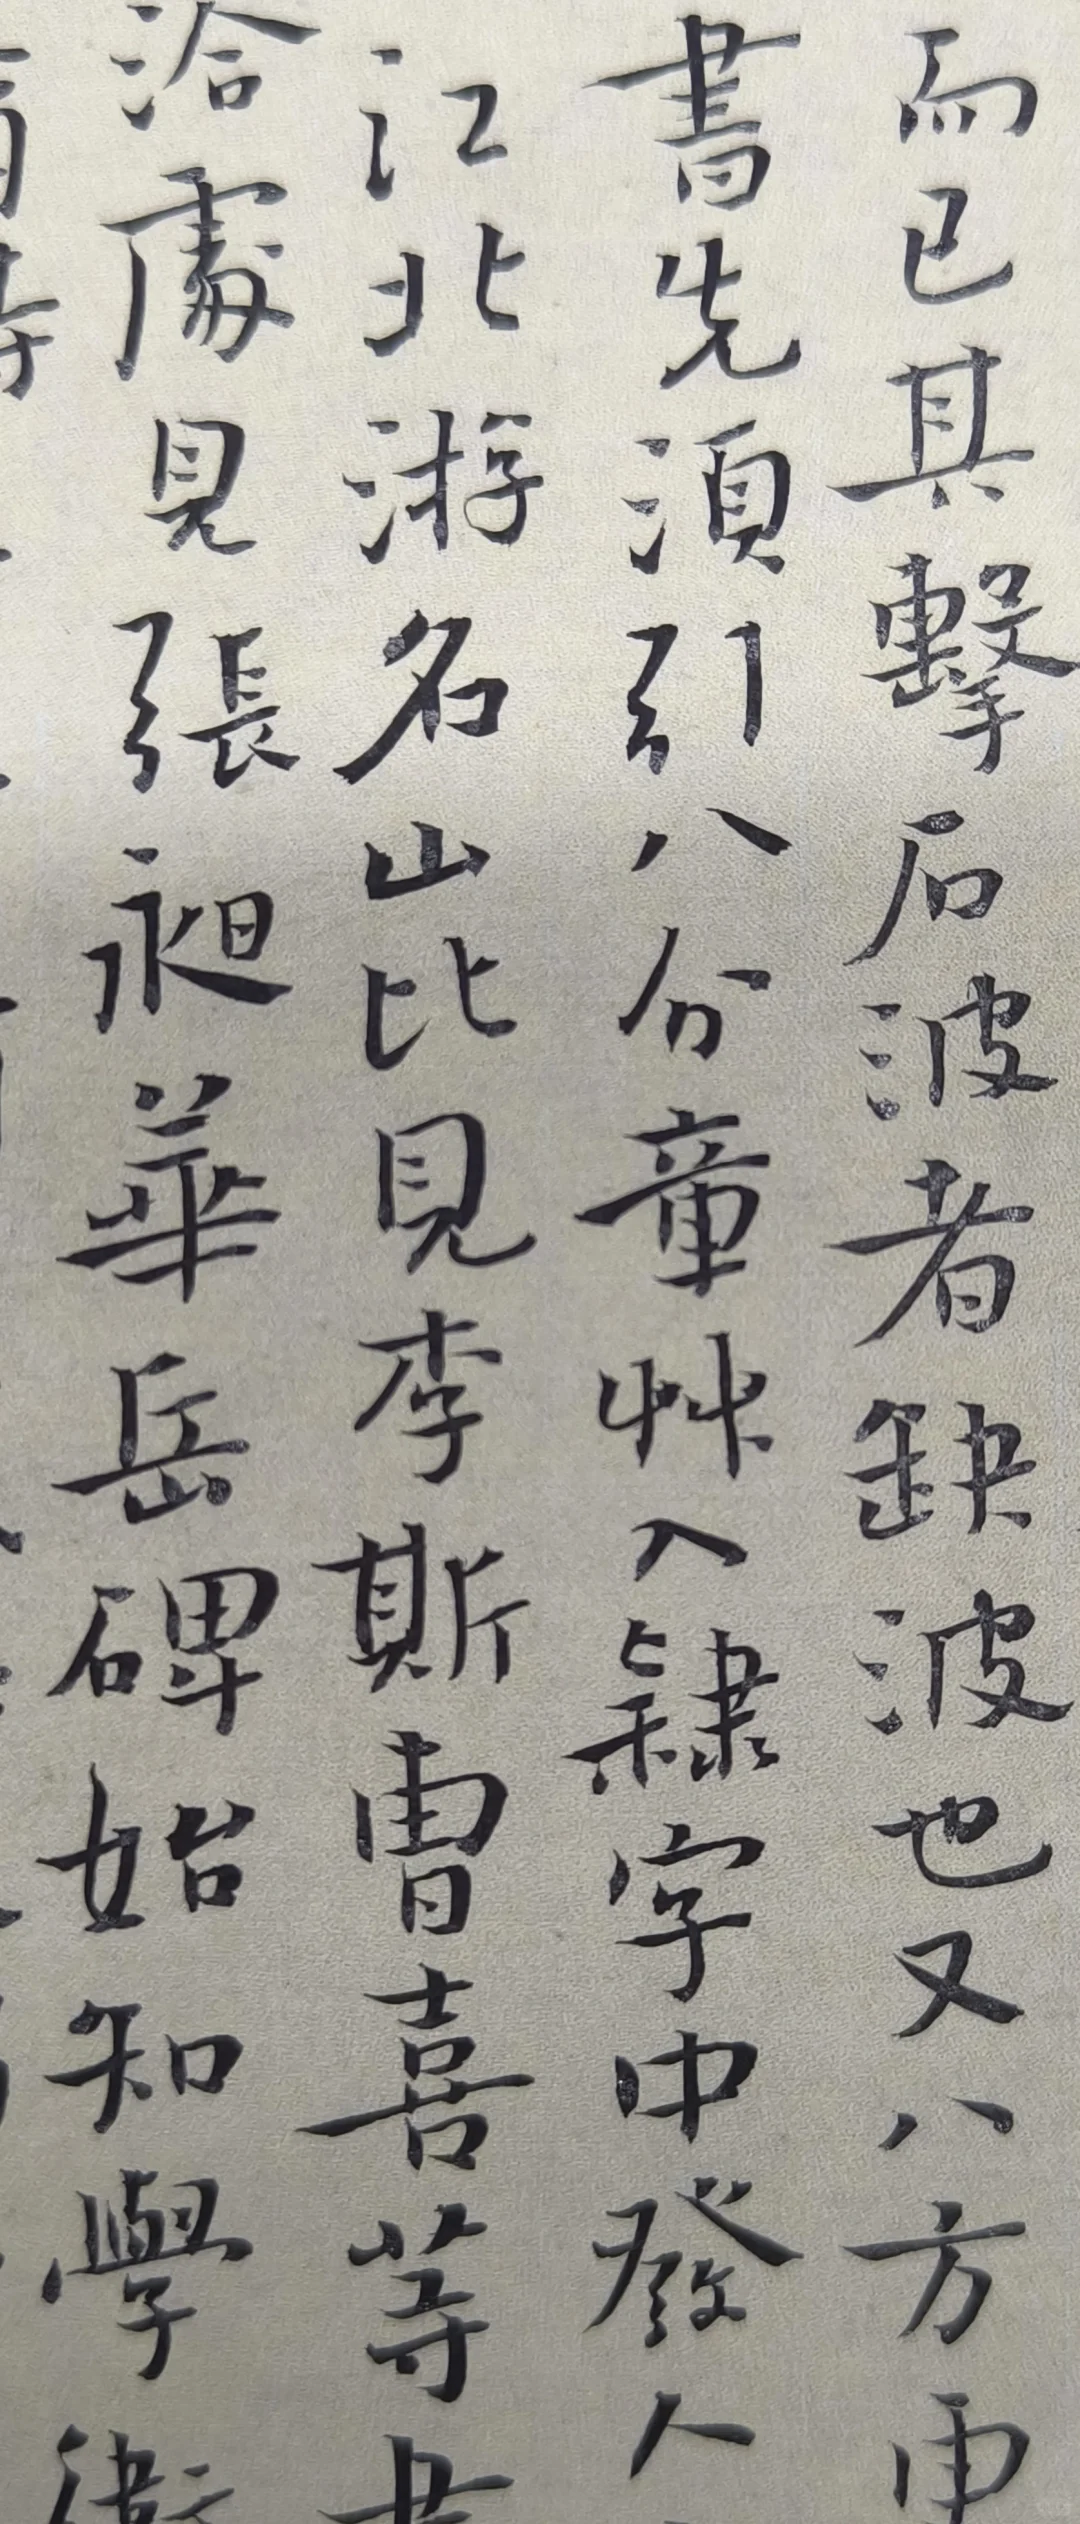 而已其擊石波者缺波也又八方更
書先須引八分章艸入隸字中發人
江北游名山比見李斯曹喜等書
洽處見張昶華岳碑始知學衛